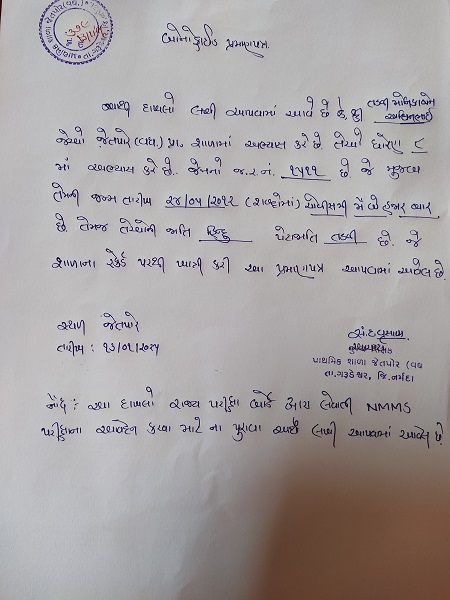 બોનોફાઈડ પ્રમાણપત્ર
આથી દાખલો લખી આપવામાં આવે છે કે, શ્રી તડવી
જેઓ જેતપોર (વઘ.) પ્રા. શાળામાં અભ્યાસ કરે છે તેઓ ધોરણ ૮
માં અભ્યાસ કરે છે. જેમનો જ.ર.નં. ૧૫૧૧ છે. જે મુજબ
તેમની જન્મ તારીખ ૨૪/૦૫/૨૦૧૨ (શબ્દોમાં) ચોવીસમી મે બે હજાર બાર
છે. તેમજ તેઓની જાતિ હિન્દુ પેટાજાતિ તડવી છે. જે
શાળાના રેકર્ડ પરથી ખાત્રી કરી આ પ્રમાણપત્ર આપવામાં આવેલ છે.
સ્થળ જેતપોર
તારીખ :
પ્રાથમિક શાળા જેતપોર (વઘ
તા.ગરૂડેશ્વર, જિ.નર્મદા
નોંધ : આ દાખલો રાજ્ય પરીક્ષા બોર્ડ દ્વારા લેવાતી NMMS
પરીક્ષાના આવેદન કરવા માટે ના પુરાવા અર્થે લખી આપવામાં આવેલ છે.